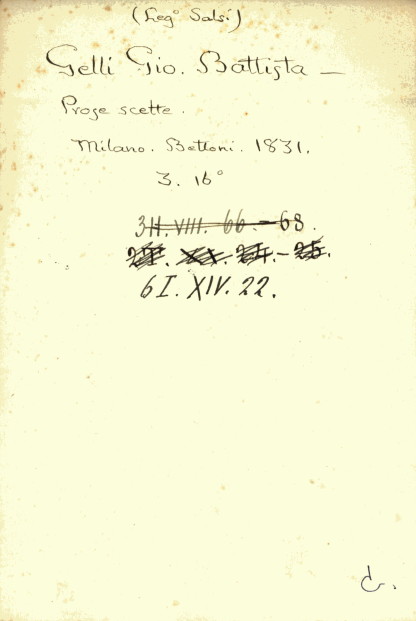 (Leg° Salsi)
Gelli Gio. Battista —
Prose scelte.
Milano. Bettoni. 1831.
3. 16°
3II. VIII. 66. - 68.
6 I. XIV. 22.